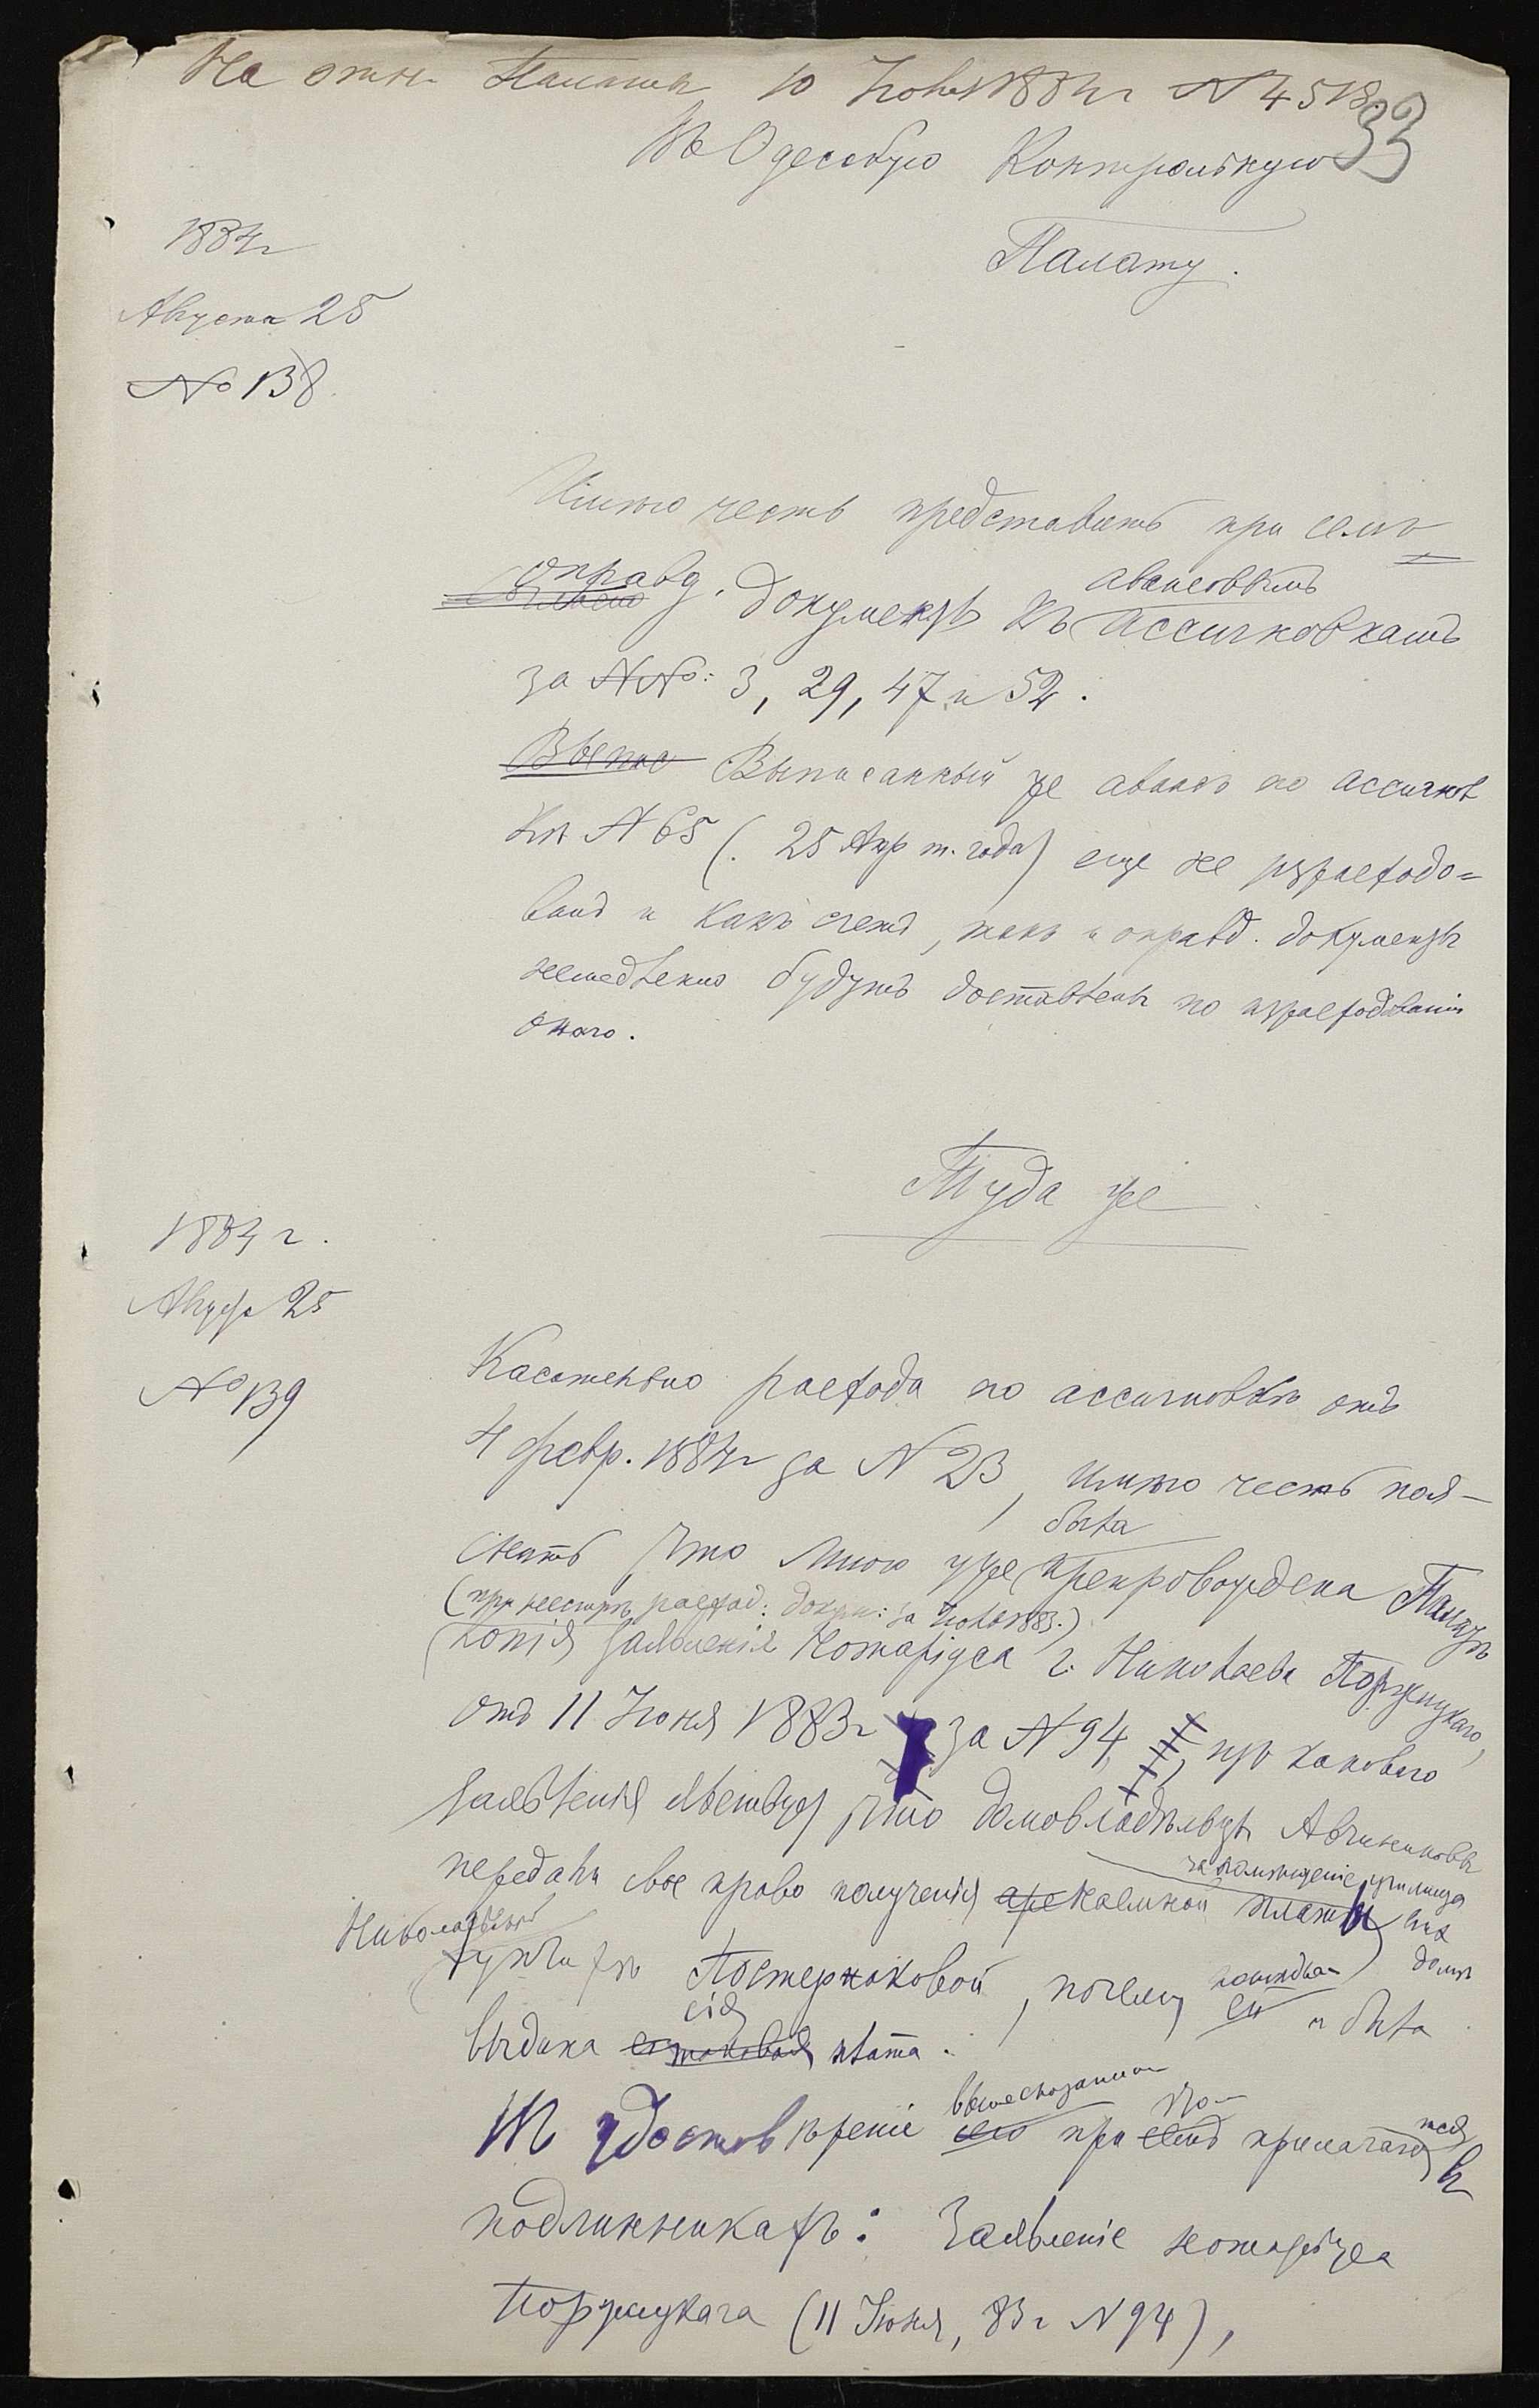 На отн. Палаты 10 Іюня 1884 г № 4518.
33
Въ Одесскую Контрольную
Палату.
1884 г
Августа 25
№ 138.
Имѣю честь представить при семъ
оправд. документы къ авансовымъ ассигновкамъ
за №№: 3, 29, 47 и 52.
Выпис Выписанный же авансъ по ассигнов
кѣ № 65 (25 Апр т. года) еще не израсходо=
ванъ и какъ счетъ, такъ и оправд. документы
немедленно будутъ доставлены по израсходованіи
онаго.
Туда же
1884 г.
Августа 25
№ 139
Касательно расхода по ассигновкѣ отъ
4 февр. 1884 г за № 23, имѣю честь пояс-
нить что мною уже была препровождена Палатѣ
(при реестрѣ расход: докум: за Іюнь 1883.)
копія заявленія Нотаріуса г. Николаева Поржицкаго,
отъ 11 Іюня 1883 г за № 94, изъ каковаго
заявленія явствуетъ что домовладѣльцы Авчинниковы
за помѣщеніе училища
передали свое право полученія арен наемной платы въ их
домѣ
Николаевской
купчихѣ Постернаковой, почему ей и была
выдана сія таковая плата.
Въ удостовѣреніе вышесказаннаго сего при семъ прилагаются въ
подлинникахъ: Заявленіе нотаріуса
Поржицкаго (11 Іюня, 83 г № 94),